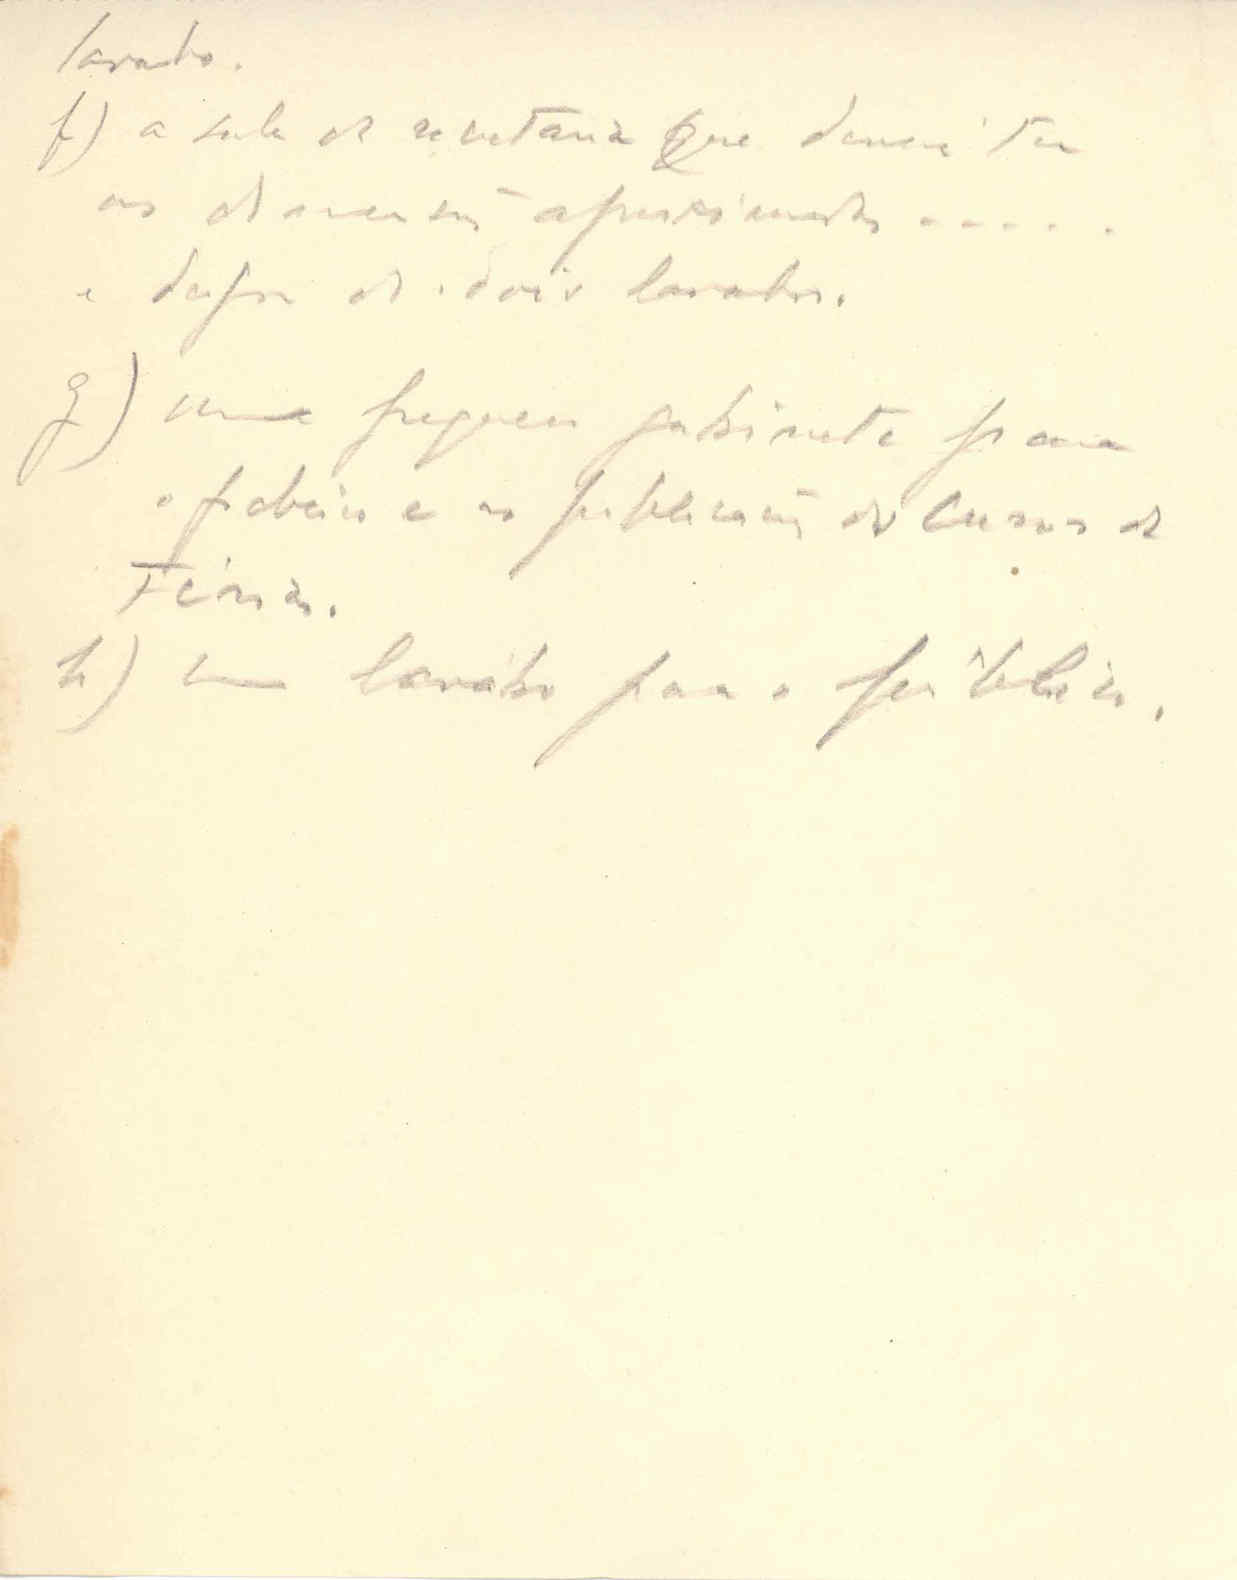 lavabo.
f) a sala de secretaria que deverá ter
as dimensões aproximadas .....
e dispor de dois lavabos.
g) um pequeno gabinete para
o ficheiro e as publicações dos Cursos de
Férias.
h) um lavabo para o público.